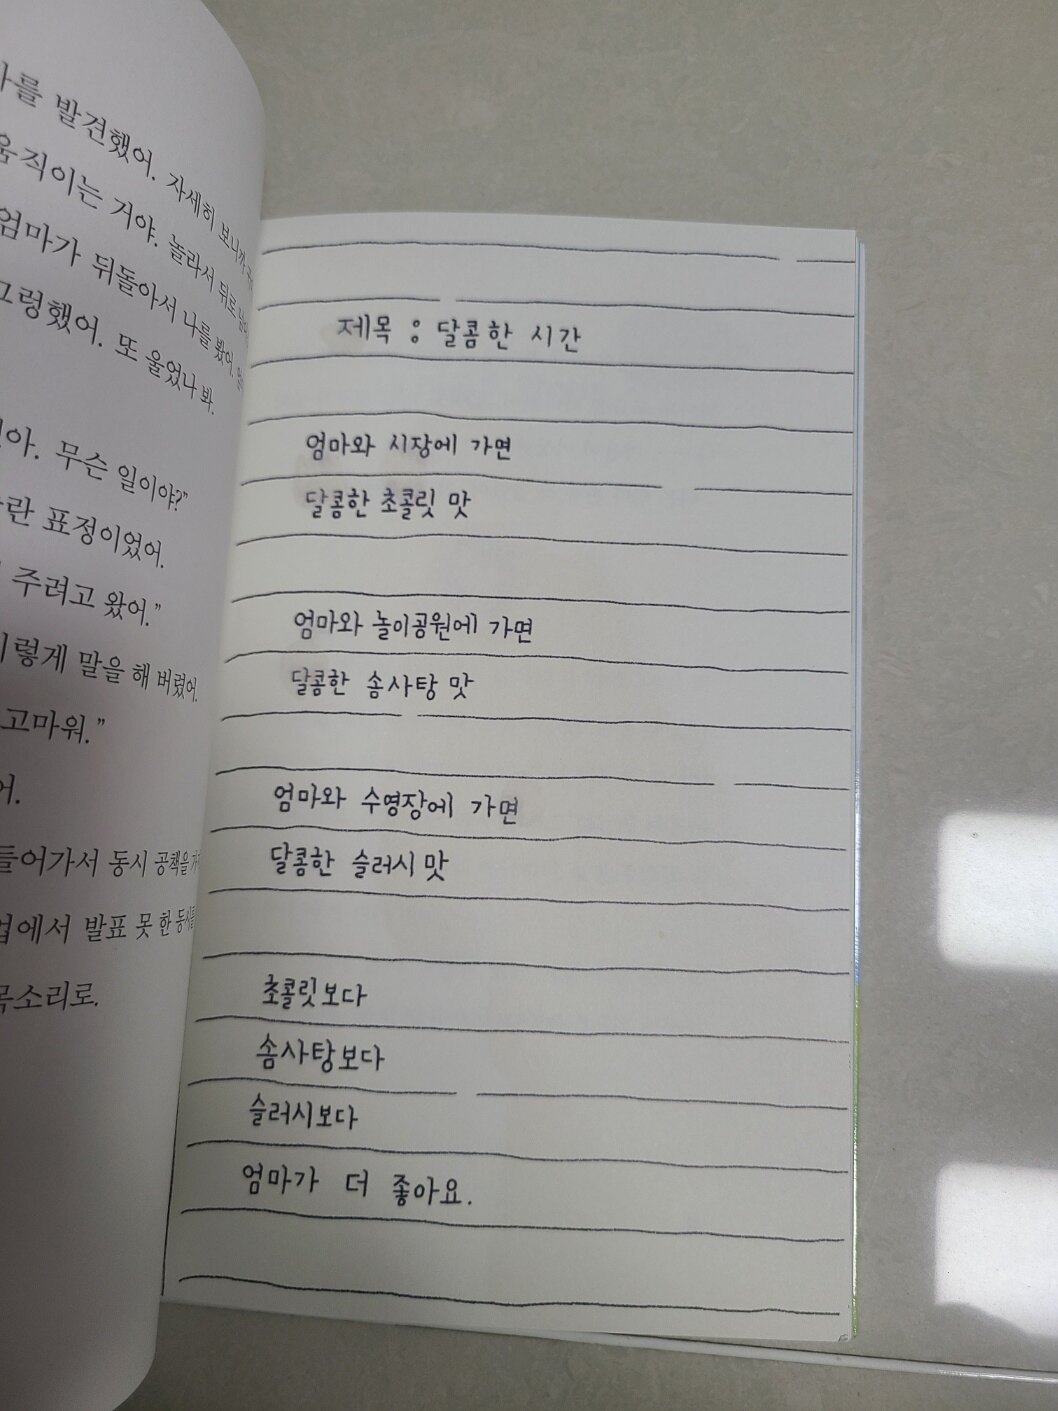 발견했어. 자세히 보니까
움직이는 거야. 놀라서 뒤로
엄마가 뒤돌아서 나를 봤어.
그렁했어. 또 울었나 봐.
무슨 일이야?”
표정이었어.
주려고 왔어.”
이렇게 말을 해 버렸어.
고마워.”
들어가서 동시 공책을
발표 못 한 동시를
목소리로.
제목 : 달콤한 시간
엄마와 시장에 가면
달콤한 초콜릿 맛
엄마와 놀이공원에 가면
달콤한 솜사탕 맛
엄마와 수영장에 가면
달콤한 슬러시 맛
초콜릿보다
솜사탕보다
슬러시보다
엄마가 더 좋아요.